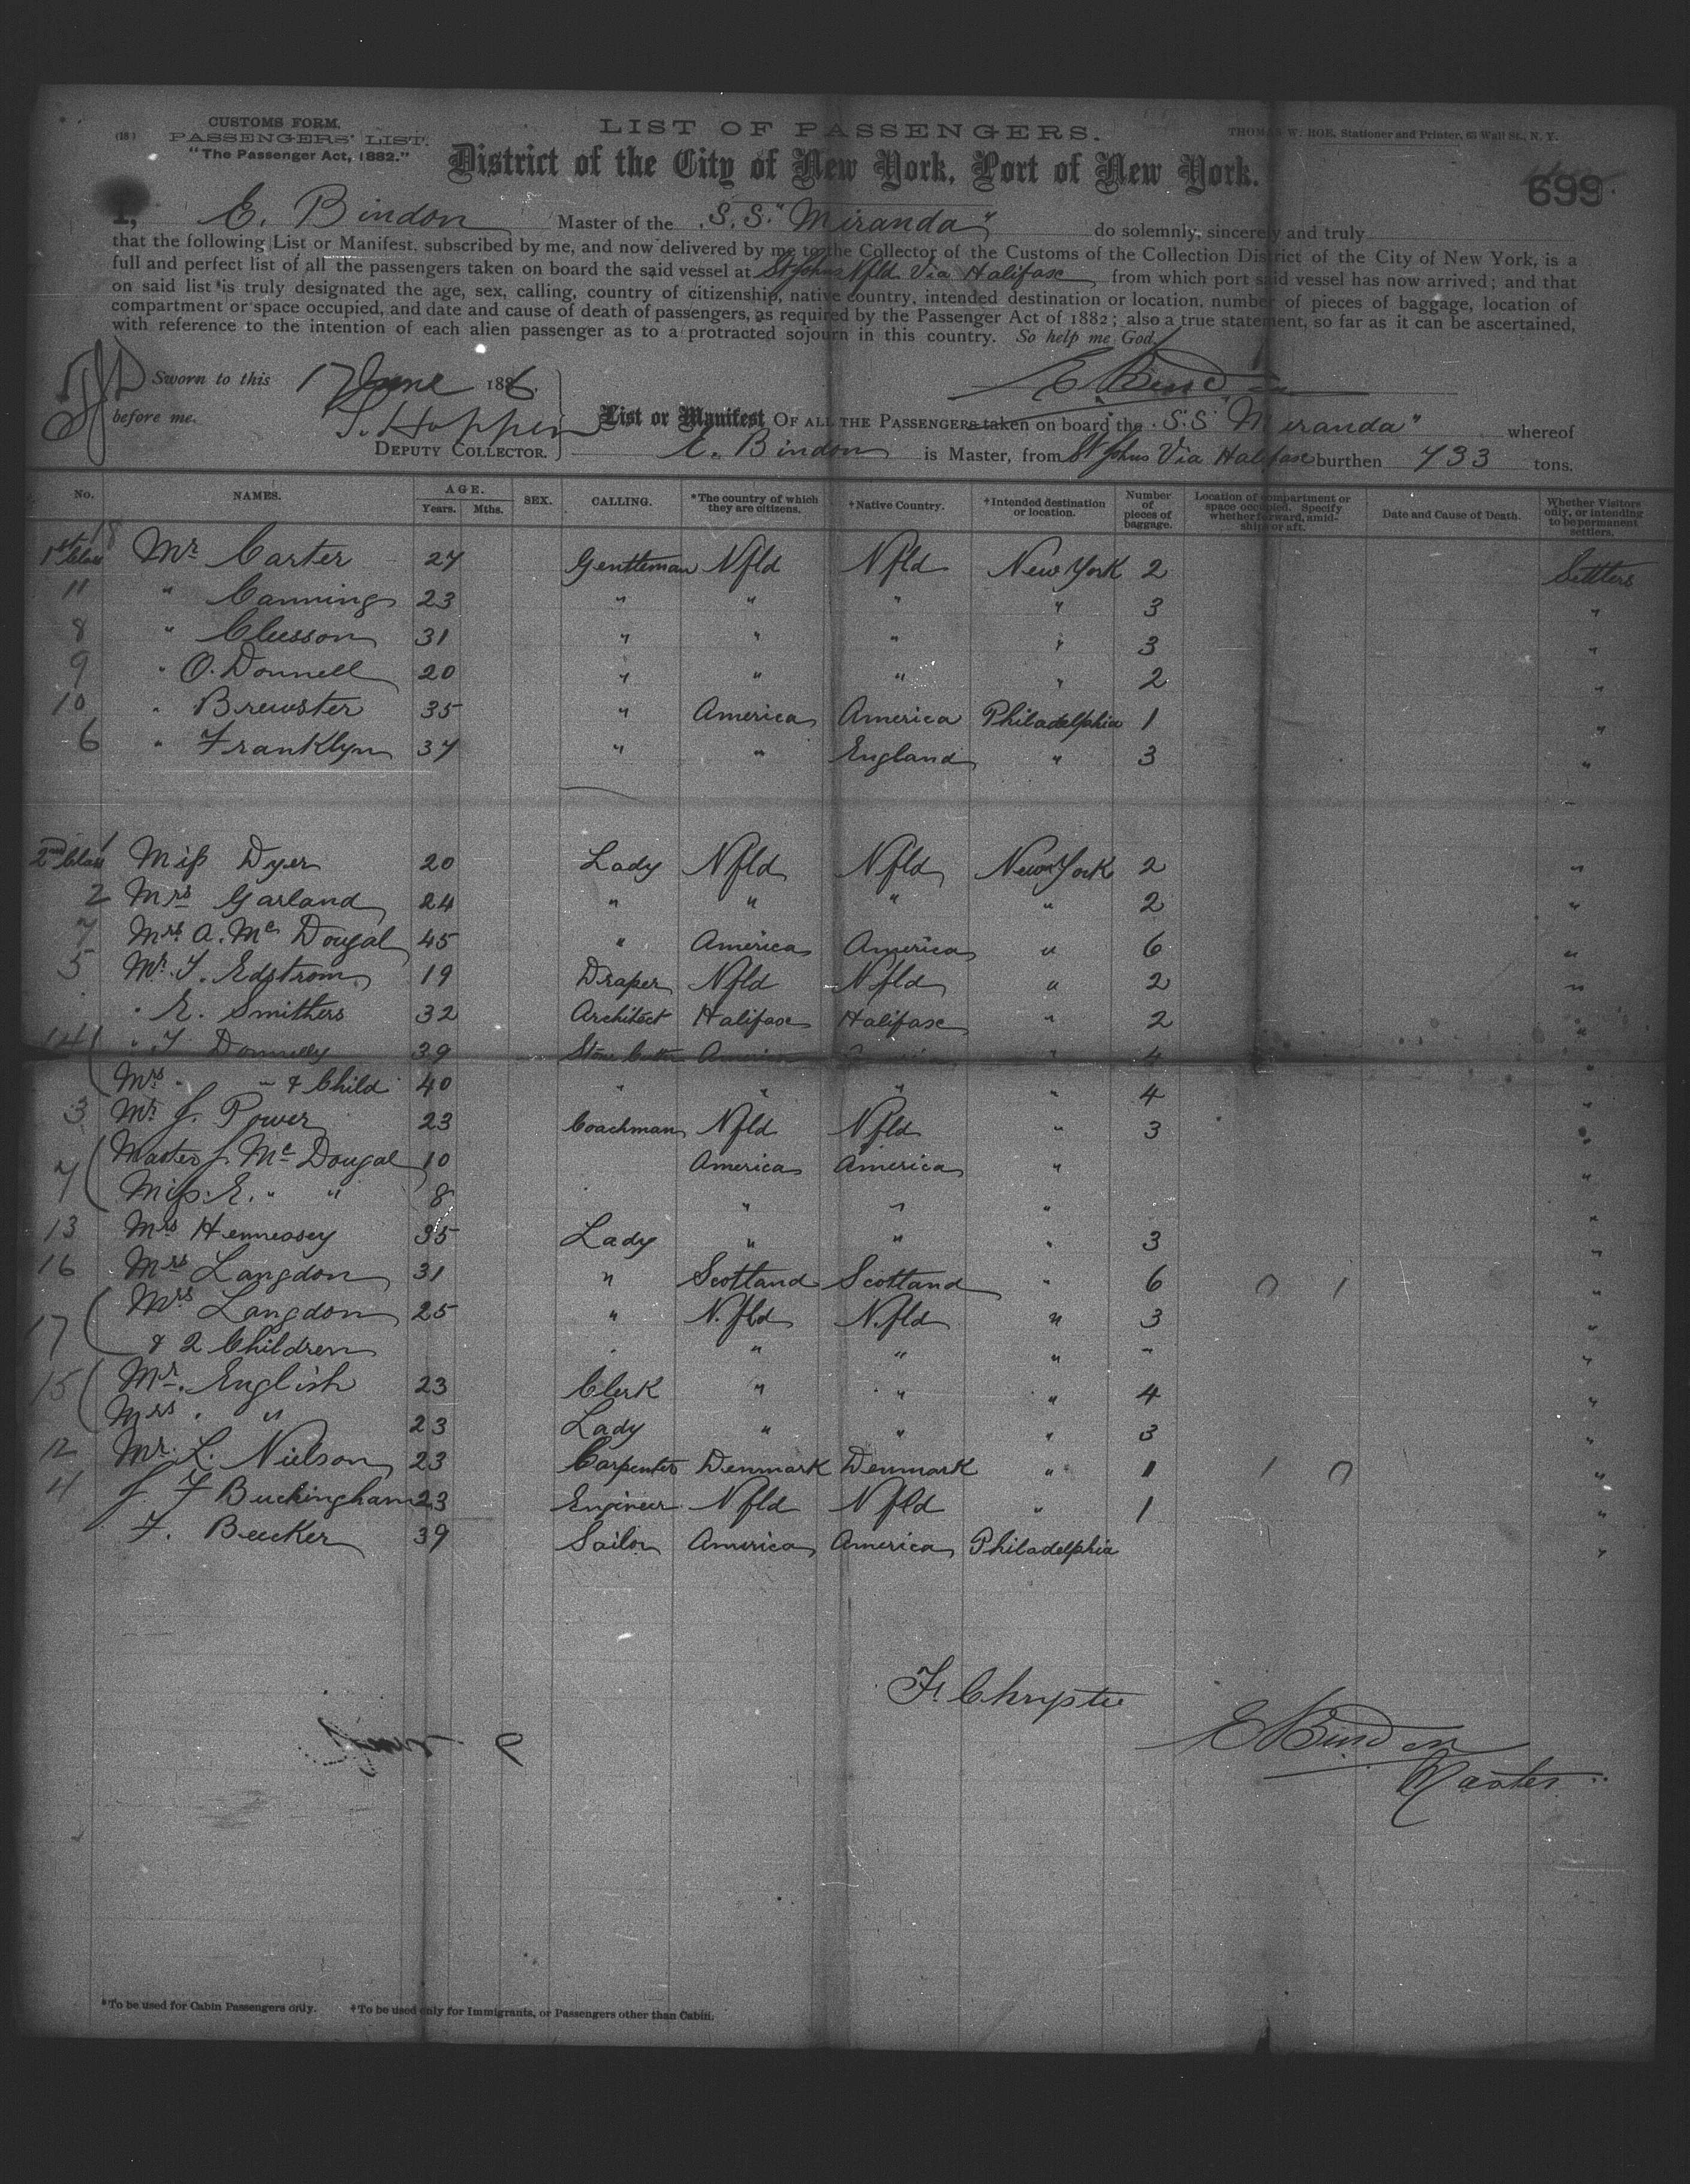 (18)
CUSTOMS FORM.
PASSENGERS' LIST.
"The Passenger Act, 1882."
LIST OF PASSENGERS.
THOMAS W. ROE, Stationer and Printer, 63 Wall St., N. Y.
District of the City of New York, Port of New York.
699
I, E. Bindon Master of the S.S. "Miranda" do solemnly, sincerely and truly
that the following List or Manifest, subscribed by me, and now delivered by me to the Collector of the Customs of the Collection District of the City of New York, is a
full and perfect list of all the passengers taken on board the said vessel at St Johns Nfld. Via Halifax from which port said vessel has now arrived; and that
on said list is truly designated the age, sex, calling, country of citizenship, native country, intended destination or location, number of pieces of baggage, location of
compartment or space occupied, and date and cause of death of passengers, as required by the Passenger Act of 1882; also a true statement, so far as it can be ascertained,
with reference to the intention of each alien passenger as to a protracted sojourn in this country. So help me God.
Sworn to this 17 June 1886. E Bindon
before me.
DEPUTY COLLECTOR.
List or Manifest OF ALL THE PASSENGERS taken on board the S.S "Miranda" whereof
E. Bindon is Master, from St Johns Via Halifax burthen 733 tons.
No. NAMES. AGE. Years. Mths. SEX. CALLING. *The country of which they are citizens. †Native Country. †Intended destination or location. Number of pieces of baggage. Location of compartment or space occupied. Specify whether forward, amidships or aft. Date and Cause of Death. Whether Visitors only, or intending to be permanent settlers.
18
1st Class Mr Carter 27 Gentleman Nfld Nfld New York 2 Settlers
11 " Canning 23 " " " " 3 "
8 " Clusson 31 " " " " 3 "
9 " O. Donnell 20 " " " " 2 "
10 " Brewster 35 " America America Philadelphia 1 "
6 " Franklyn 37 " " England " 3 "
1
2nd Class Miss Dyer 20 Lady Nfld Nfld New York 2 "
2 Mrs Garland 24 " " " " 2 "
7 Mrs A. Mc Dougal 45 " America America " 6 "
5 Mr. F. Edstrom 19 Draper Nfld Nfld " 2 "
" E. Smithers 32 Architect Halifax Halifax " 2 "
14 " T Donnelly 39 Stone Cutter America America " 4 "
Mrs " " & Child 40 " " " " 4 "
3 Mr J. Power 23 Coachman Nfld Nfld " 3 "
7 Master J. Mc Dougal 10 America America " "
Miss E. " " 8 " " " "
13 Mrs Hennessey 35 Lady " " " 3 "
16 Mrs Langdon 31 " Scotland Scotland " 6 0 1 "
17 Mrs Langdon 25 " N.fld N.fld " 3 "
& 2 Children " " " " "
15 Mr. English 23 Clerk " " " 4 "
Mrs " " 23 Lady " " " 3 "
12 Mr. L. Nielson 23 Carpenter Denmark Denmark " 1 1 0 "
4 J. F Buckingham 23 Engineer Nfld Nfld " 1 "
F. Beecker 39 Sailor America America Philadelphia "
F. Chrystie
E Bindon
Master
*To be used for Cabin Passengers only. †To be used only for Immigrants, or Passengers other than Cabin.